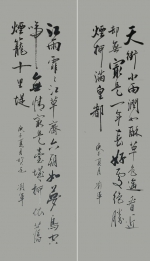 天街小雨润如酥草色遥看近
却无最是一年春好处绝胜
烟柳满皇都
江雨霏霏江草齐六朝如梦鸟空
啼无情最是台城柳依旧
烟笼十里堤